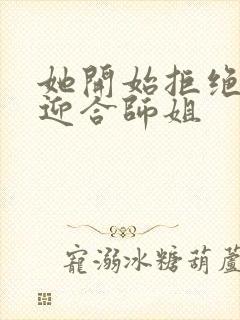 她開始拒絕
迎合師姐
寵溺冰糖葫蘆